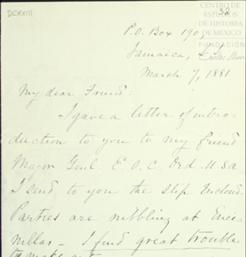 DCXXIII
CENTRO DE
ESTUDIOS
DE HISTORIA
DE MEXICO
FUNDACIÓN
P.O. Box 190
Jamaica,
March 7, 1881
My dear Friend
I gave a letter of intro-
duction to you to my friend
Major Genl E. O. C. Ord U.S.A
I send to you the slip inclosed
Parties are nibbling at Enci-
nillas – I find great trouble